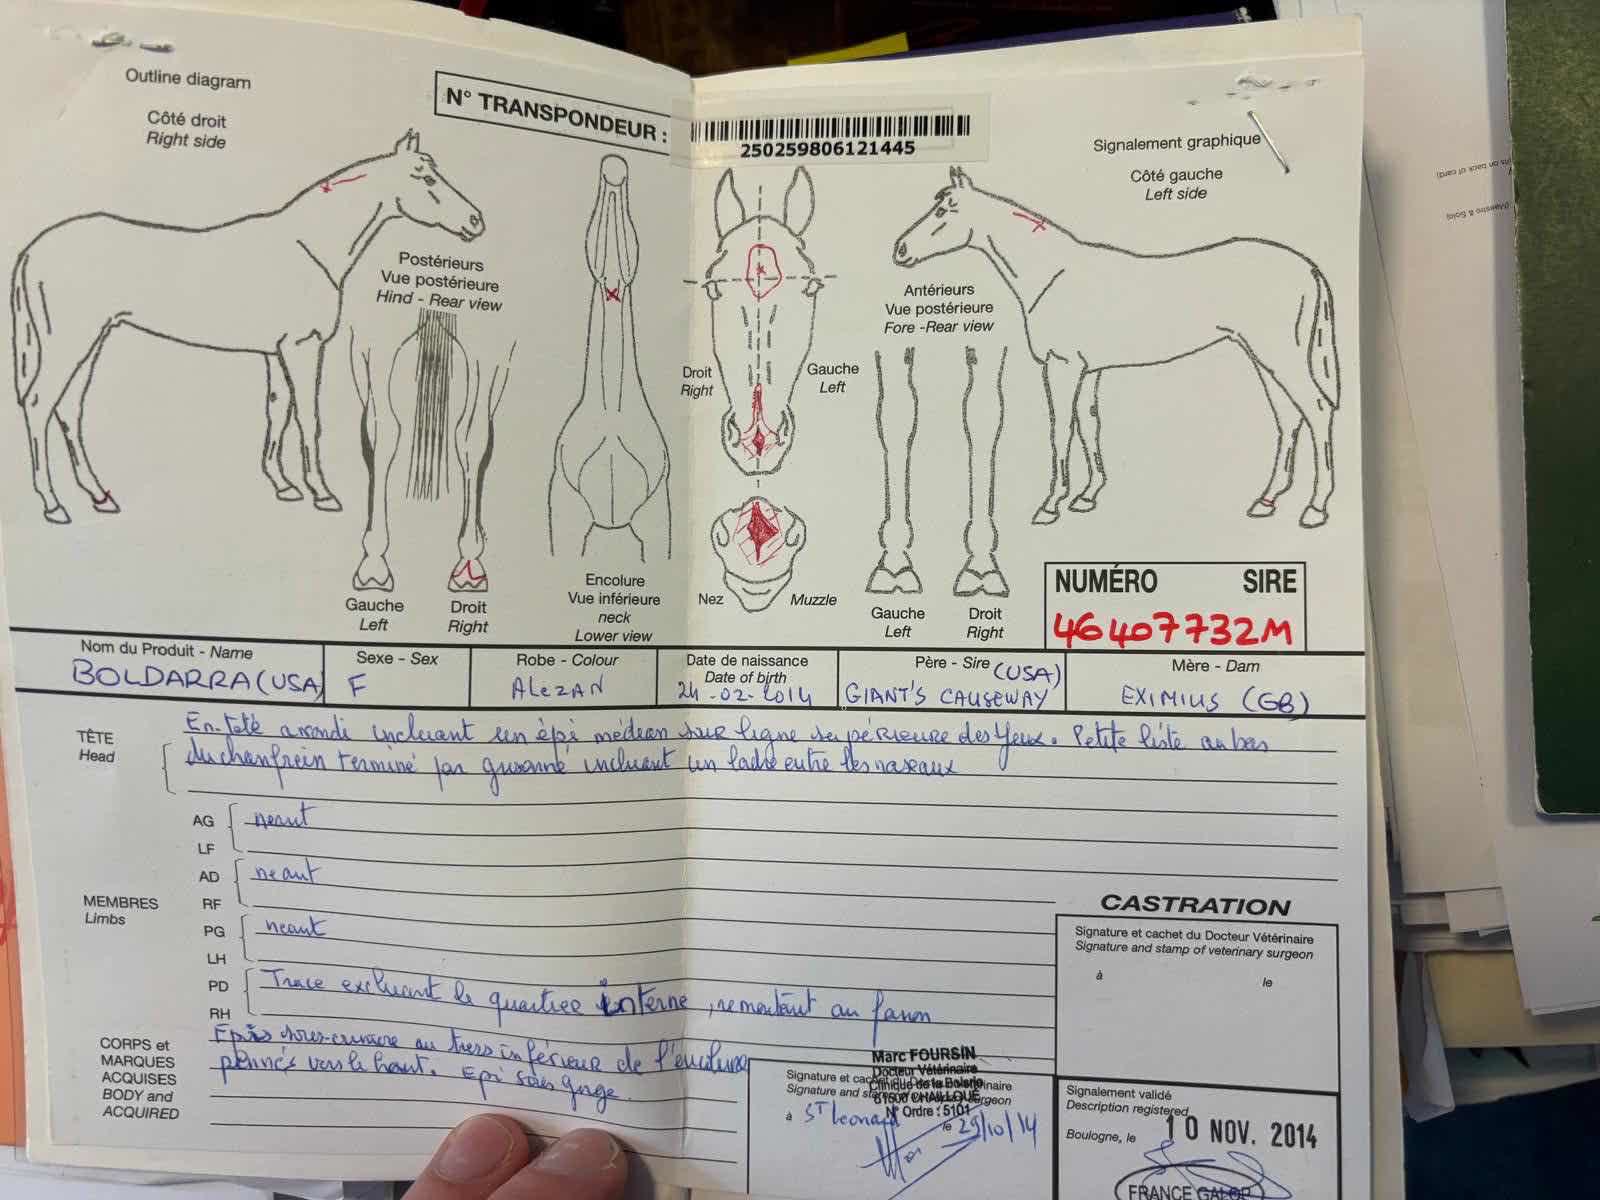 Outline diagram
Côté droit
Right side
N° TRANSPONDEUR :
250259806121445
Signalement graphique
Côté gauche
Left side
Postérieurs
Vue postérieure
Hind - Rear view
Antérieurs
Vue postérieure
Fore -Rear view
Droit
Right
Gauche
Left
Gauche
Left
Droit
Right
Encolure
Vue inférieure
neck
Lower view
Nez
Muzzle
Gauche
Left
Droit
Right
NUMÉRO SIRE
46407732M
Nom du Produit - Name
BOLDARRA (USA)
Sexe - Sex
F
Robe - Colour
ALEZAN
Date de naissance
Date of birth
24-02-2014
Père - Sire (USA)
GIANT'S CAUSEWAY
Mère - Dam
EXIMIUS (GB)
TÊTE
Head
En-tête arrondi incluant un épi médian sur ligne supérieure des Yeux. Petite liste au bas
du chanfrein terminé par incluant un ladre entre les naseaux
AG
LF
neant
AD
RF
neant
MEMBRES
Limbs
PG
LH
neant
PD
RH
Trace excluant le quartier interne, remontant au fanon
CORPS et
MARQUES
ACQUISES
BODY and
ACQUIRED
Epis au tiers inférieur de l'encolure
pennés vers le haut. Epi sous gorge.
CASTRATION
Signature et cachet du Docteur Vétérinaire
Signature and stamp of veterinary surgeon
à le
Marc FOURSIN
Docteur Vétérinaire
61500 CHAILLOUÉ
N° Ordre : 5101
à St Leonard le 29/10/14
Signalement validé
Description registered
Boulogne, le 10 NOV. 2014
FRANCE GALOP